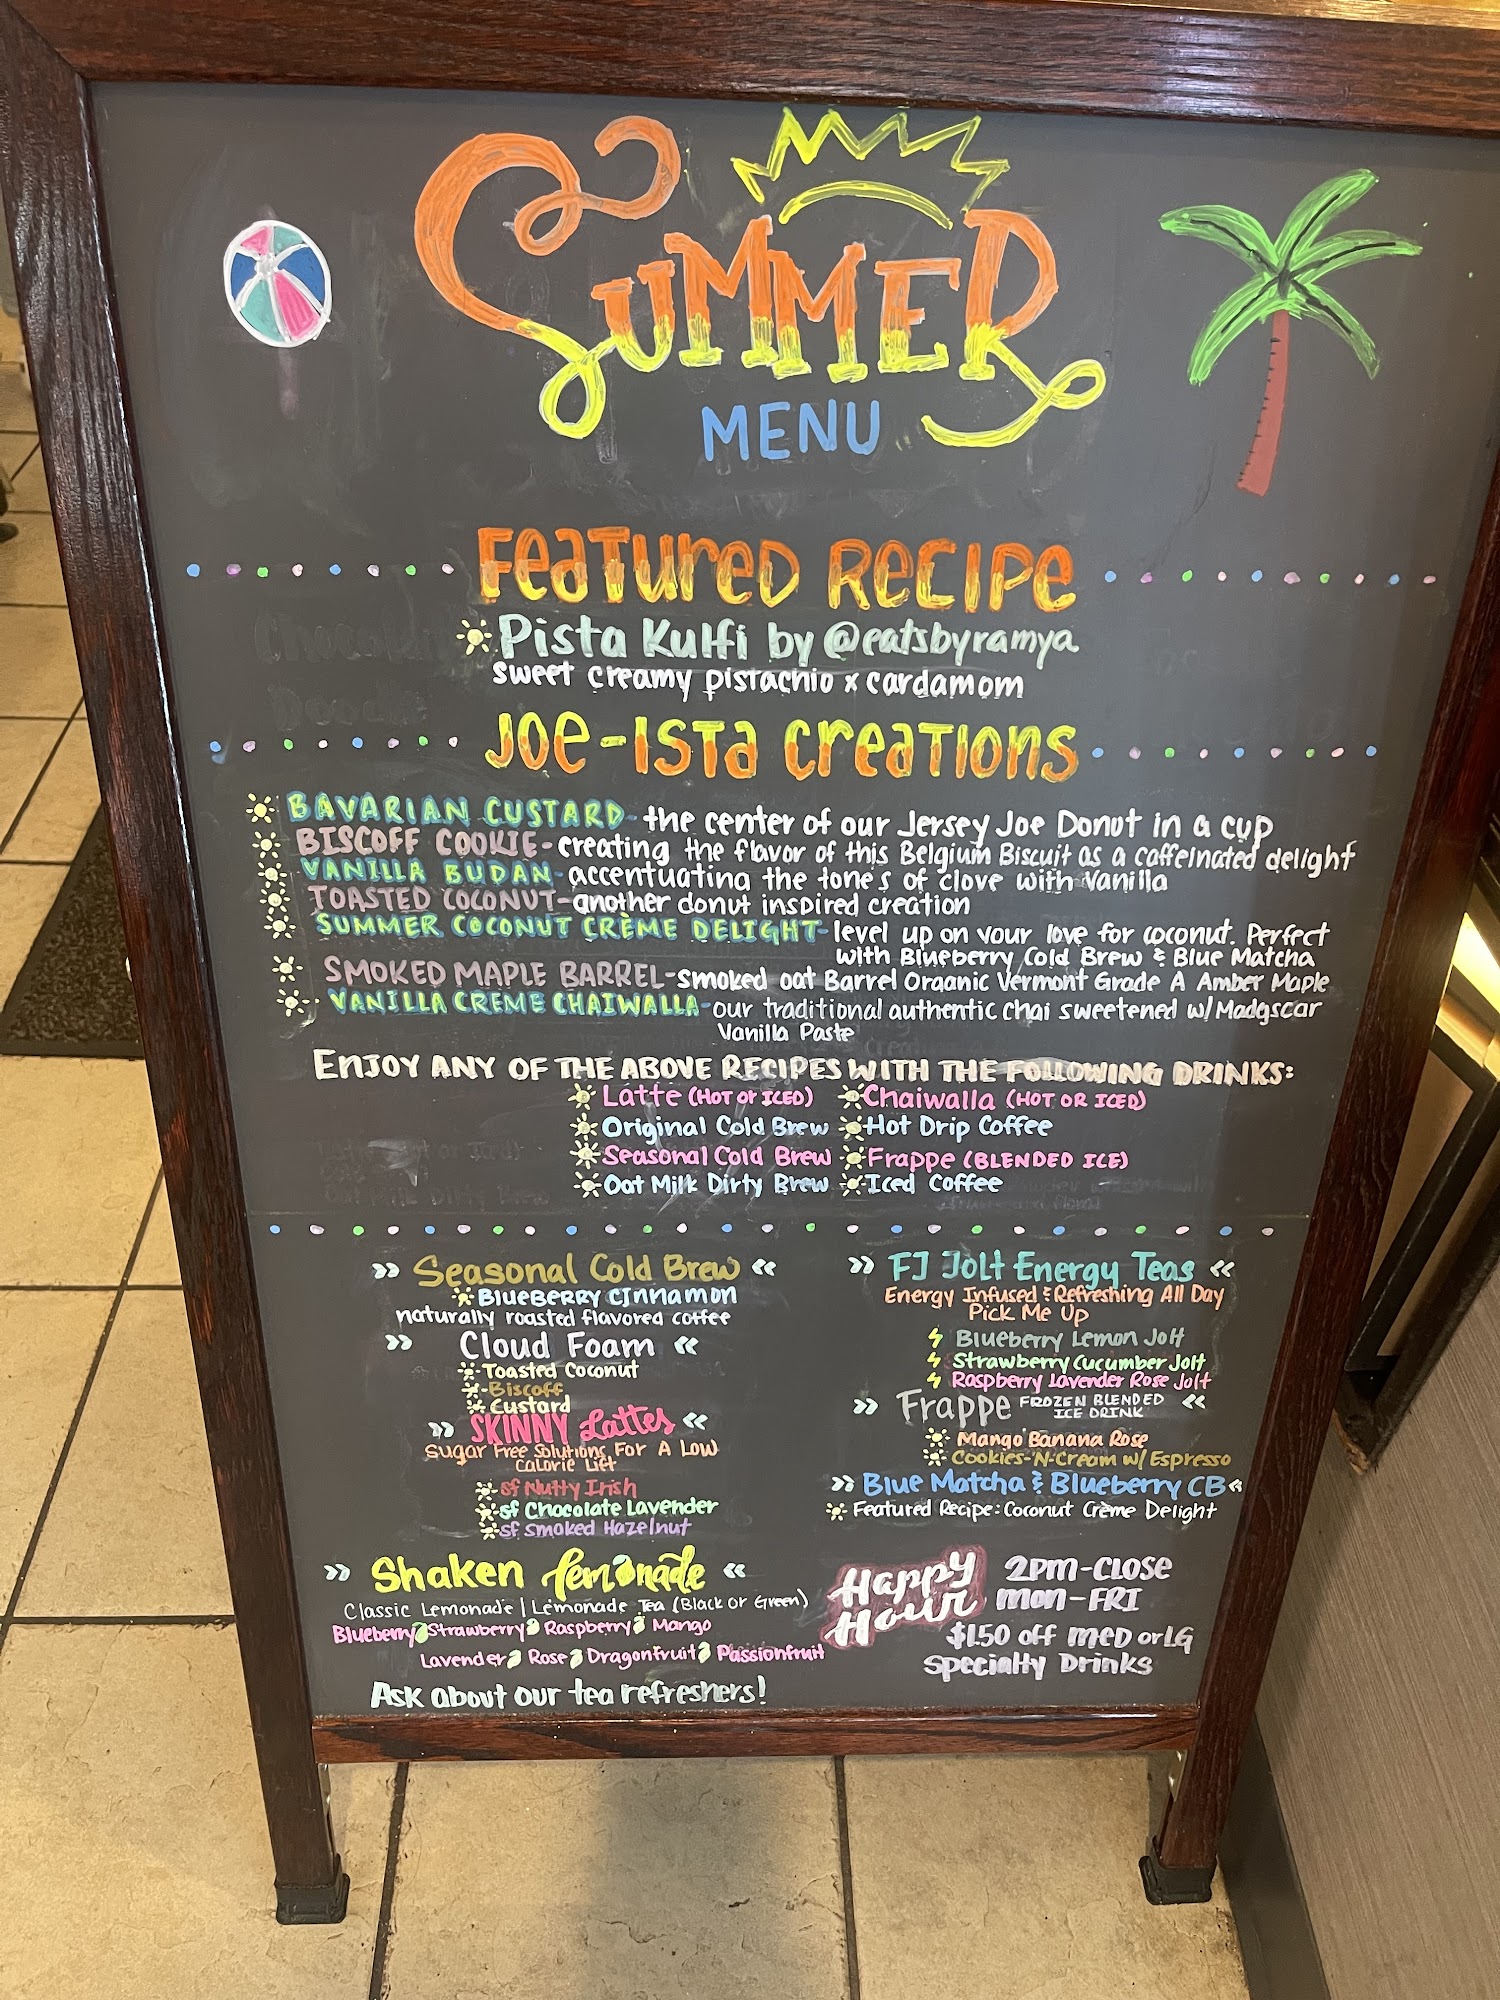 SUMMER
MENU
FEATURED RECIPE
Pista Kulfi by @eatsbyramya
sweet creamy pistachio x cardamom
JOE-ISTA CREATIONS
BAVARIAN CUSTARD- the center of our Jersey Joe Donut in a cup
BISCOFF COOKIE- creating the flavor of this Belgium Biscuit as a caffeinated delight
VANILLA BUDAN- accentuating the tones of clove with Vanilla
TOASTED COCONUT- another donut inspired creation
SUMMER COCONUT CRÈME DELIGHT- level up on your love for coconut. Perfect
with Blueberry Cold Brew & Blue Matcha
SMOKED MAPLE BARREL- smoked oat Barrel Organic Vermont Grade A Amber Maple
VANILLA CREME CHAIWALLA- our traditional authentic chai sweetened w/ Madgscar
Vanilla Paste
ENJOY ANY OF THE ABOVE RECIPES WITH THE FOLLOWING DRINKS:
Latte (HOT or ICED) Chaiwalla (HOT OR ICED)
Original Cold Brew Hot Drip Coffee
Seasonal Cold Brew Frappe (BLENDED ICE)
Oat Milk Dirty Brew Iced Coffee
» Seasonal Cold Brew «
BLUEBERRY CINNAMON
naturally roasted flavored coffee
» Cloud Foam «
Toasted Coconut
Biscoff
Custard
» SKINNY Lattes «
Sugar Free Solutions For A Low
Calorie Lift
sf Nutty Irish
sf Chocolate Lavender
sf Smoked Hazelnut
» Shaken Lemonade «
Classic Lemonade | Lemonade Tea (Black or Green)
Blueberry Strawberry Raspberry Mango
Lavender Rose Dragonfruit Passionfruit
Ask about our tea refreshers!
» FJ Jolt Energy Teas «
Energy Infused & Refreshing All Day
Pick Me Up
Blueberry Lemon Jolt
Strawberry Cucumber Jolt
Raspberry Lavender Rose Jolt
» Frappe FROZEN BLENDED «
ICE DRINK
Mango Banana Rose
Cookies-N-Cream w/ Espresso
» Blue Matcha & Blueberry CB «
Featured Recipe: Coconut Crème Delight
Happy Hour
2PM-CLOSE
MON-FRI
$1.50 off MED or LG
Specialty Drinks